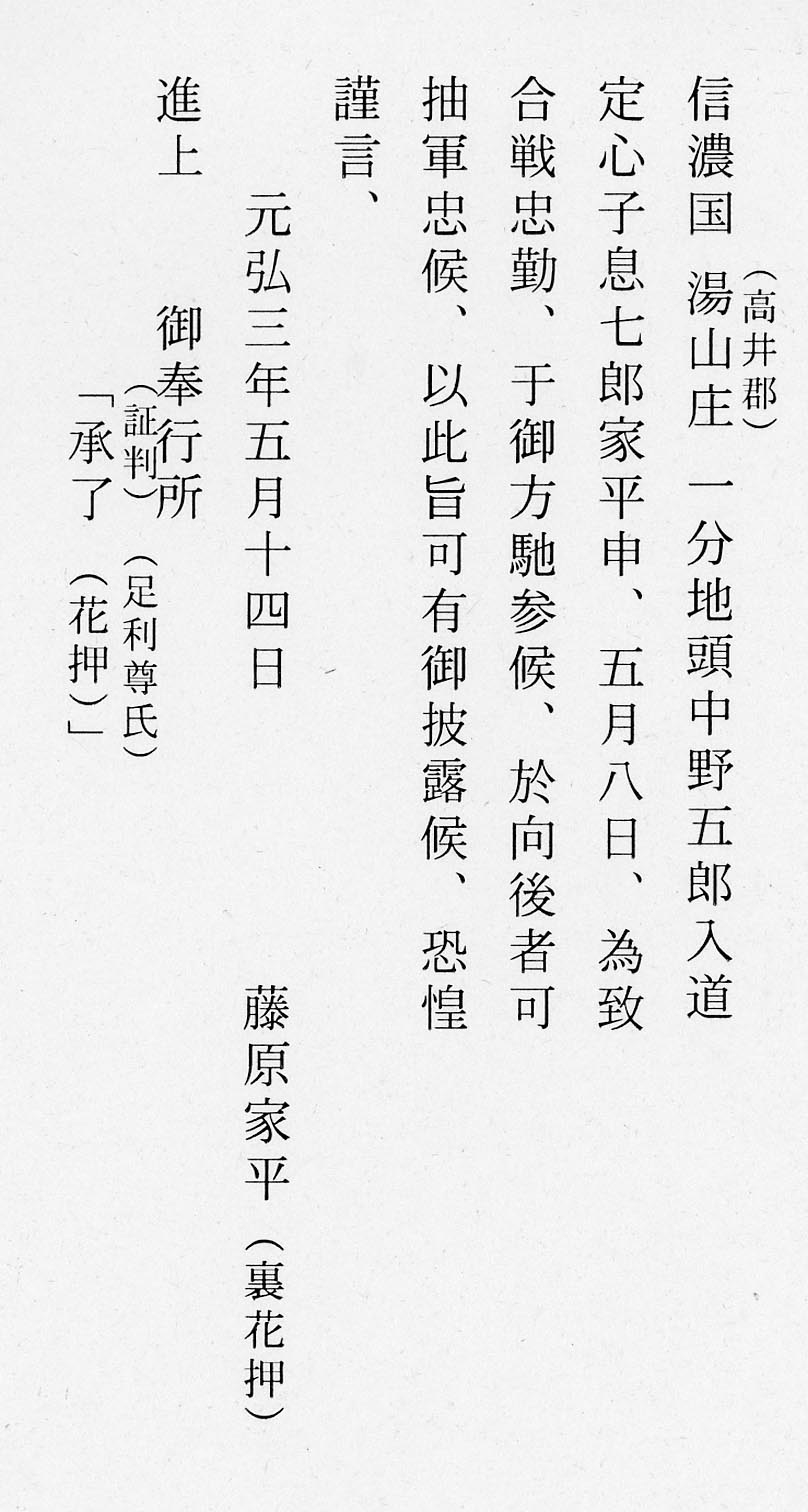 （高井郡）
信濃国　湯山庄　一分地頭中野五郎入道
定心子息七郎家平申、五月八日、為致
合戦忠勤、于御方馳参候、於向後者可
抽軍忠候、以此旨可有御披露候、恐惶
謹言、
元弘三年五月十四日　藤原家平（裏花押）
進上　御奉行所
（証判）（足利尊氏）
「承了（花押）」